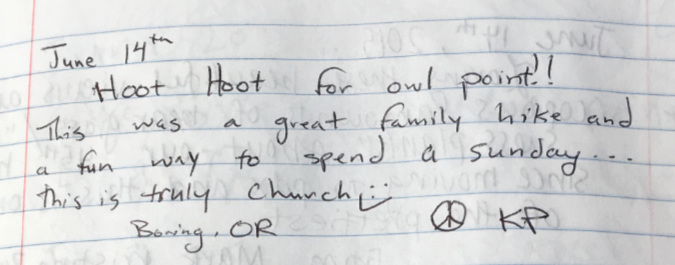 June 14th
Hoot Hoot for owl point!!
This was a great family hike and
a fun way to spend a sunday...
this is truly church
Boring, OR KP